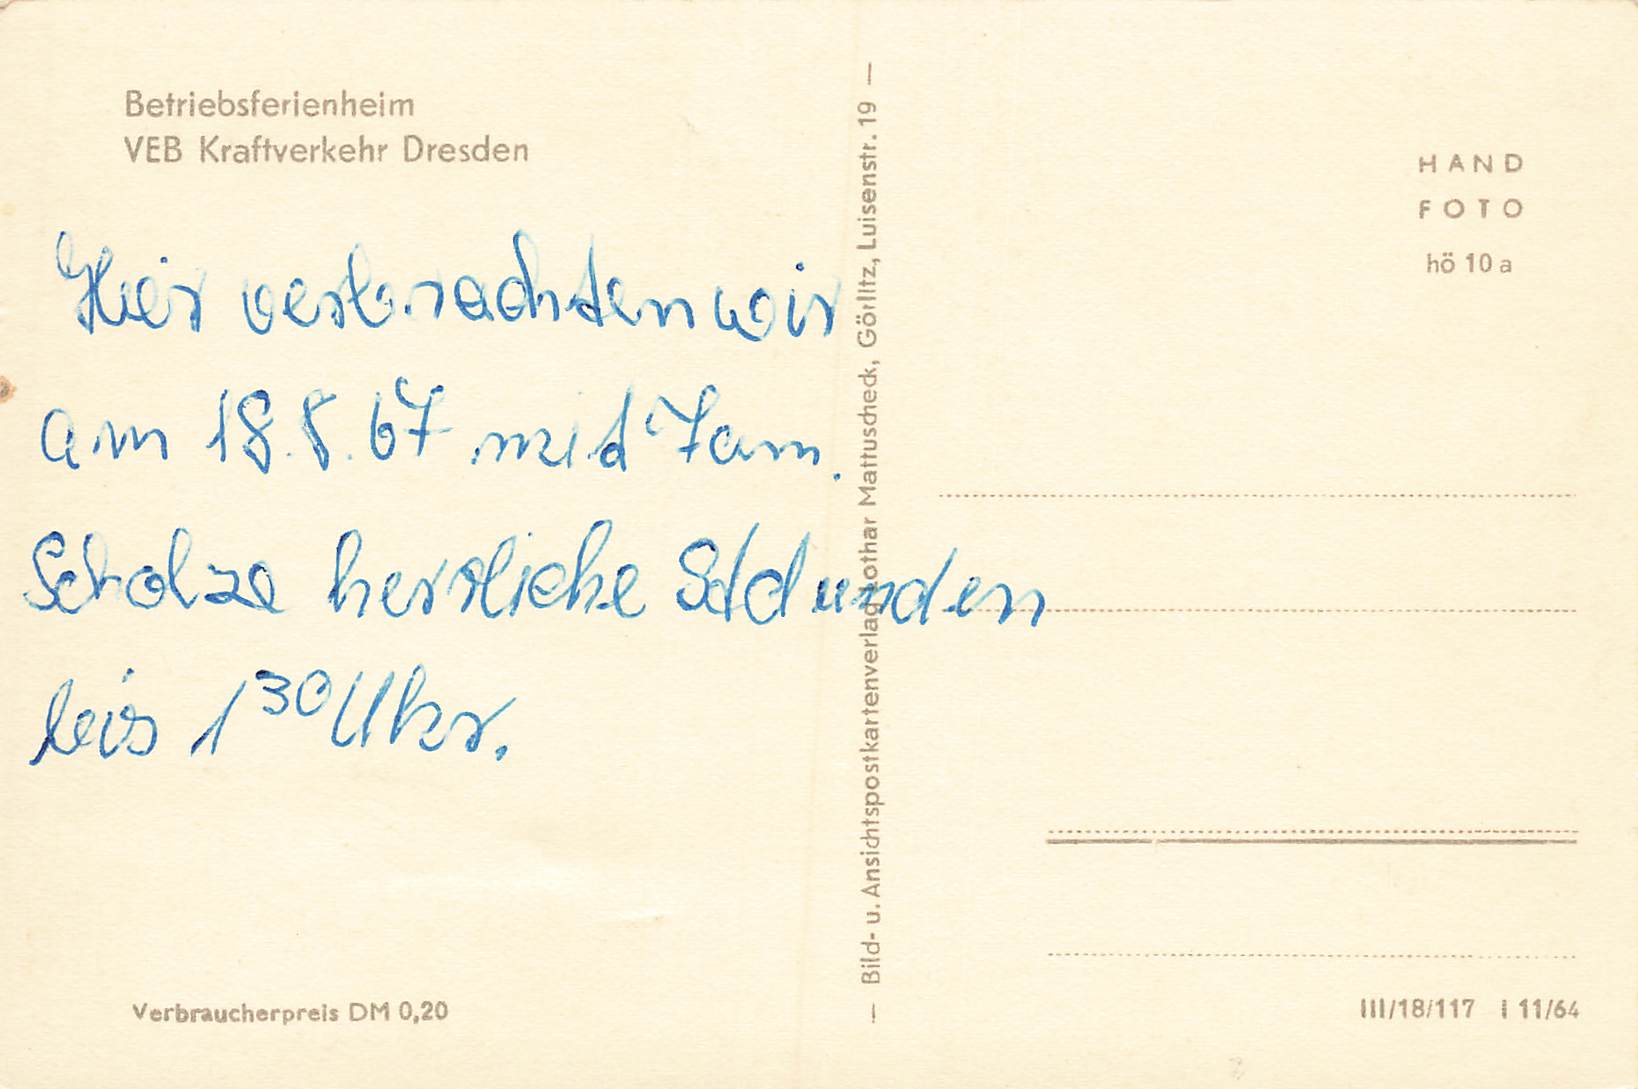 Betriebsferienheim
VEB Kraftverkehr Dresden
Hier verbrachten wir
am 18.8.67 mit Fam.
Scholze herrliche Stunden
bis 1³⁰ Uhr.
Verbraucherpreis DM 0,20
— Bild- u. Ansichtspostkartenverlag Lothar Mattuscheck, Görlitz, Luisenstr. 19 —
HAND
FOTO
hö 10 a
III/18/117 I 11/64